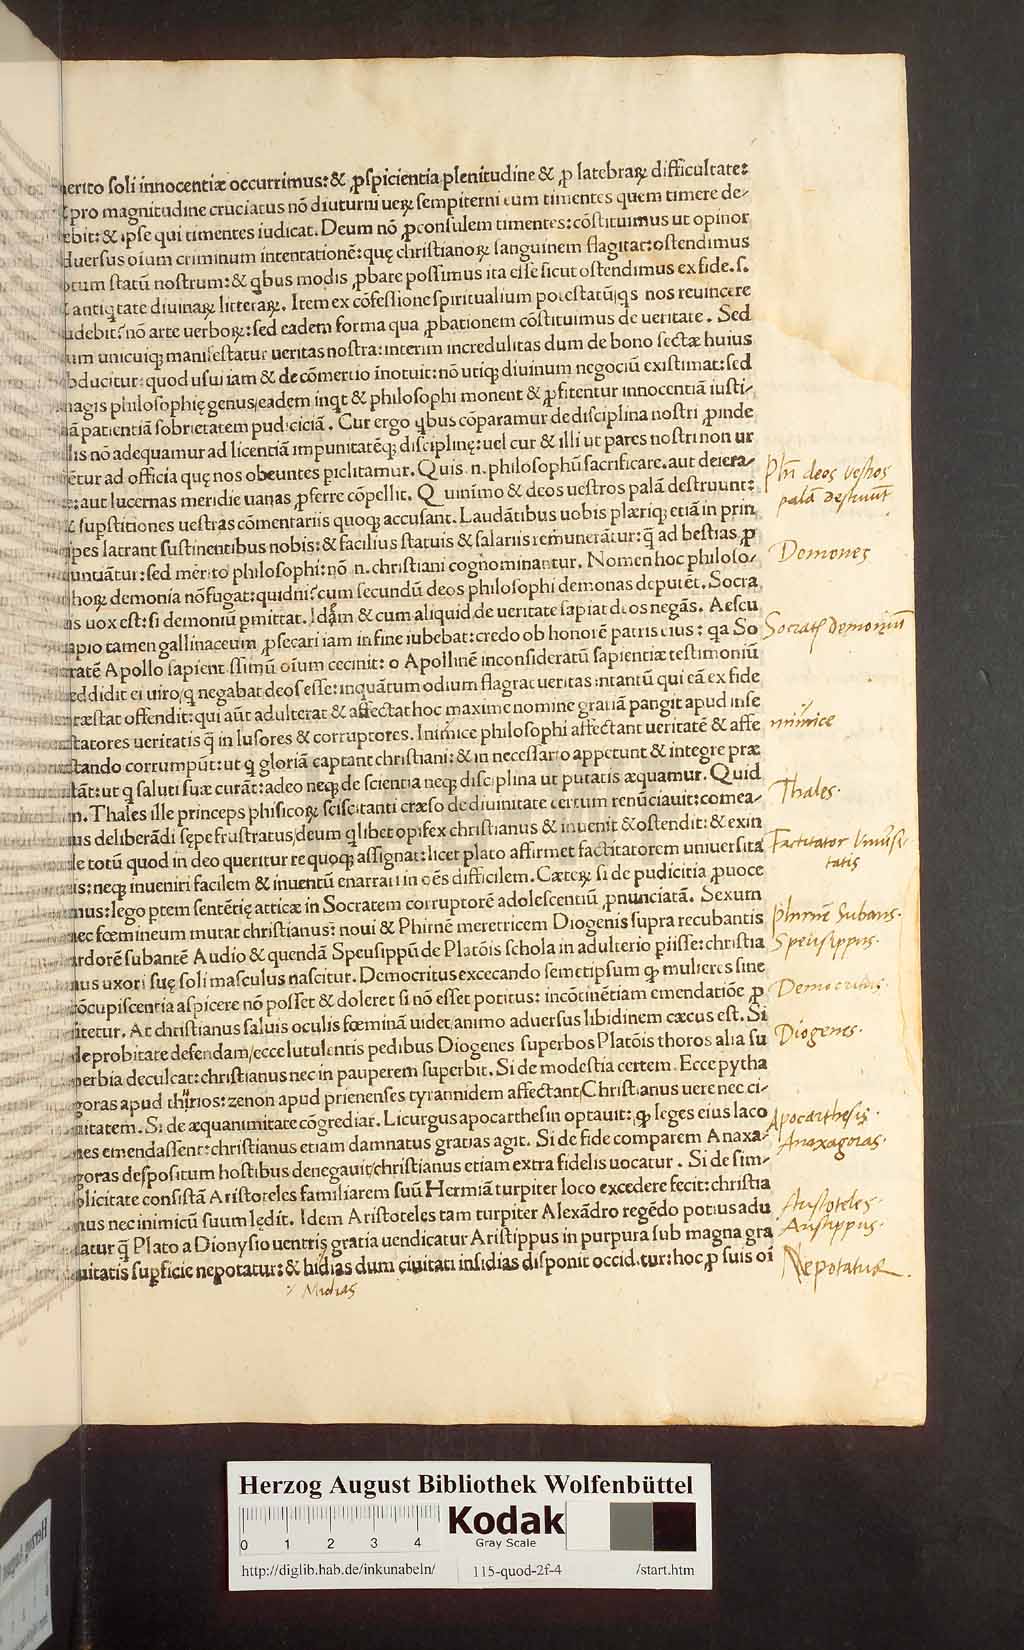 erito soli innocentiæ occurrimus: & ꝓspicientia plenitudine & ꝓ latebraꝝ difficultate:
pro magnitudine cruciatus nō diuturni ueꝝ sempiterni eum timentes quem timere de-
ebit: & ipse qui timentes iudicat. Deum nō ꝓconsulem timentes: cōstituimus ut opinor
duersus oīum criminum intentationē: quę christianoꝝ sanguinem flagitat: ostendimus
otum statū nostrum: & qbus modis ꝓbare possimus ita esse sicut ostendimus ex fide. s.
antiqtate diuinaꝝ litteraꝝ. Item ex cōfessione spiritualium potestatū qs nos reuincere
udebit? nō arte uerboꝝ: sed eadem forma qua ꝓbationem cōstituimus de ueritate. Sed
um unicuiqꝫ manifestatur ueritas nostra: interim incredulitas dum de bono sectæ huius
bducitur: quod usui iam & de cōmertio īnotuit: nō utiqꝫ diuinum negociū existimat: sed
nagis philosophię genus/eadem inqt & philosophi monent & ꝓfitentur innocentiā iusti-
ā patientiā sobrietatem pudiciciā. Cur ergo qbus cōparamur de disciplina nostri ꝓinde
lis nō adequamur ad licentiā impunitatēqꝫ disciplinę: uel cur & illi ut pares nostri non ur
ētur ad officia quę nos obeuntes piclitamur. Quis .n. philosophū sacrificare. aut deiera-
e: aut lucernas meridie uanas ꝓferre cōpellit. Quinīmo & deos uestros palā destruunt:
& supstitiones uestras cōmentariis quoqꝫ accusant. Laudātibus uobis plæriqꝫ etiā in prin
ipes latrant sustinentibus nobis: & facilius statuis & salariis remunerātur: q̄ ad bestias ꝓ
untiātur: sed merito philosophi: nō .n. christiani cognominantur. Nomen hoc philoso-
hoꝝ demonia nō fugat: quidni? cum secundū deos philosophi demonas deputēt. Socra
is uox est: si demoniū pmittat. Idā̄m & cum aliquid de ueritate sapiat deos negās. Aescu
apio tamen gallinaceum ꝓsecari iam in fine iubebat: credo ob honorē patris eius: qa So
ratē Apollo sapientissimū oīum cecinit: o Apollinē inconsideratū sapientiæ testimoniū
eddidit ei uiro/q negabat deos esse: inquātum odium flagrat ueritas intantū qui eā ex fide
ræstat offendit: qui aūt adulterat & affectat hoc maxime nomine gratiā pangit apud inse
tatores ueritatis q̄ in lusores & corruptores. Inimice philosophi affectant ueritatē & affe
tando corrumpūt: ut q gloriā captant christiani: & in necessario appetunt & integre præ
tāt: ut q saluti suæ curāt: adeo neqꝫ de scientia neqꝫ disciplina ut putatis æquamur. Quid
n. Thales ille princeps phisicoꝝ sciscitanti cræso de diuinitate certum renūciauit: comea-
us deliberādi sępe frustratus/deum qlibet opifex christianus & inuenit & ostendit: & exin
le totū quod in deo queritur re quoqꝫ assignat: licet plato affirmet factitatorem uniuersita
is: neqꝫ inueniri facilem & inuentū enarrari in oēs difficilem. Cæteꝝ si de pudicitia ꝓuoce
mus: lego ptem sentētię atticæ in Socratem corruptorē adolescentiū ꝓnunciatā. Sexum
nec fœmineum mutat christianus: noui & Phirnē meretricem Diogenis supra recubantis
rdorē subantē Audio & quendā Speusippū de Platōis schola in adulterio piisse: christia
nus uxori suę soli masculus nascitur. Democritus excecando semetipsum qꝫ mulieres sine
ōcupiscentia aspicere nō posset & doleret si nō esset potitus: incōtinētiam emendatiōe ꝓ
itetur. At christianus saluis oculis fœminā uidet/animo aduersus libidinem cæcus est. Si
de probitate defendam/ecce lutulentis pedibus Diogenes superbos Platōis thoros alia su
perbia deculcat: christianus nec in pauperem superbit. Si de modestia certem. Ecce pytha
goras apud thurios: zenon apud prienenses tyrannidem affectant/Christianus uere nec ci-
uitatem. Si de æquanimitate cōgrediar. Licurgus apocarthesin optauit: qꝫ leges eius laco
nes emendassent: christianus etiam damnatus gratias agit. Si de fide comparem Anaxa-
goras despositum hostibus denegauit/christianus etiam extra fidelis uocatur. Si de sim-
plicitate consistā Aristoteles familiarem suū Hermiā turpiter loco excedere fecit: christia
nus nec inimicū suum lędit. Idem Aristoteles tam turpiter Alexādro regēdo potius adu
latur q̄ Plato a Dionysio uentris gratia uendicatur Aristippus in purpura sub magna gra
uitatis supficie nepotatur: & hidias dum ciuitati insidias disponit occiditur: hoc ꝓ suis oī
Phi deos vestros
palā destruūt
Demones
Socratis demoniū
inimice
Thales.
Factitator Vniuersi-
tatis
Phirnē Subans.
Speusippus.
Democritus.
Diogenes.
Apocarthesis.
Anaxagoras.
Aristoteles.
Aristippus.
Nepotatur.
Midias
Herzog August Bibliothek Wolfenbüttel
0 1 2 3 4
Kodak
Gray Scale
http://diglib.hab.de/inkunabeln/ 115-quod-2f-4 /start.htm